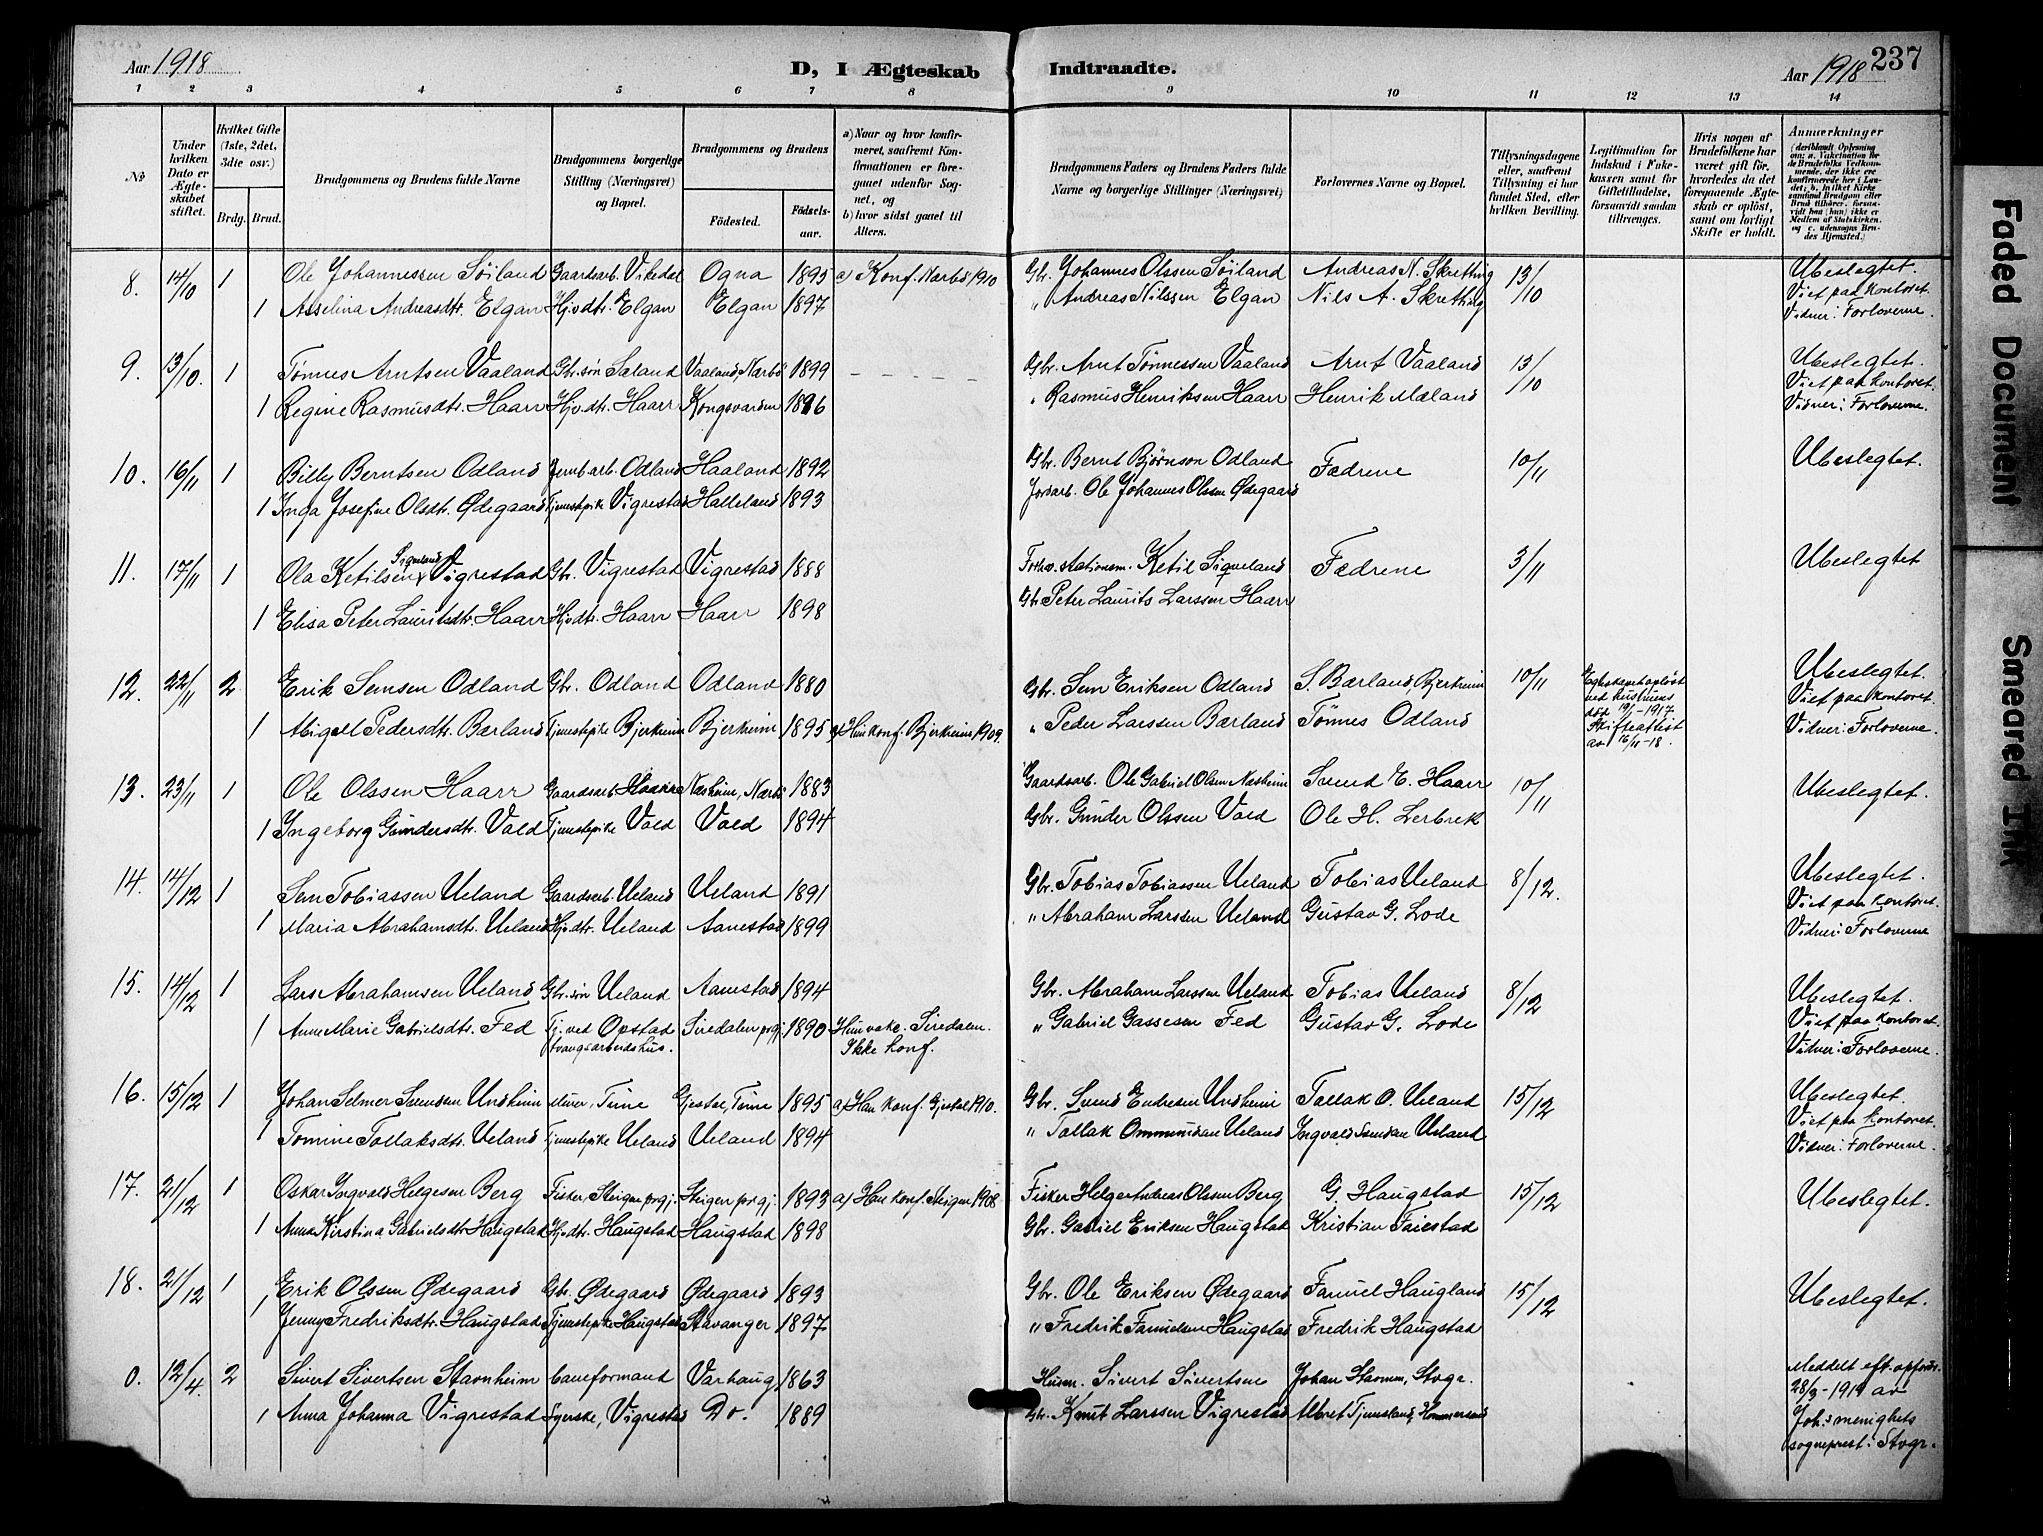 Aar 1918
D, I Ægteskab
Indtraadte.
Aar 1918
237
1 2 3 4 5 6 7 8 9 10 11 12 13 14
No
Under hvilken Dato er Ægteskabet stiftet.
Hvilket Gifte (1ste, 2det, 3dte osv.)
Brdg. Brud.
Brudgommens og Brudens fulde Navne
Brudgommens borgerlige Stilling (Næringsvei) og Bopæl.
Brudgommens og Brudens
Fødested.
Fødselsaar.
a) Naar og hvor konfirmeret, saafremt Konfirmationen er foregaaet udenfor Sognet, og
b) hvor sidst gaaet til Alters.
Brudgommens Faders og Brudens Faders fulde Navne og borgerlige Stillinger (Næringsvei)
Forlovernes Navne og Bopæl.
Tillysningsdagene eller, saafremt Tillysning ei har fundet Sted, efter hvilken Bevilling.
Legitimation for Indskud i Enkekassen samt for Giftetilladelse, forsaavidt saadan tiltrænges.
Hvis nogen af Brudefolkene har været gift før, hvorledes da det foregaaende Ægteskab er opløst, samt om lovligt Skifte er holdt.
Anmærkninger (deriblandt Oplysning om: a. Vakcination for de Brudefolks Vedkommende, der ikke ere konfirmerede her i Landet; b. hvilket Kirkesamfund Brudgom eller Brud tilhører, forsaavidt han (hun) ikke er Medlem af Statskirken, og c. udensogns Brudes Hjemsted.)
8. 14/10 1 Ole Johannessen Söiland Gaardsarb. Vikedal Ogna 1895 a) Konf. Nærbö, 1910 Gbr. Johannes Olssen Söiland Andreas N. Skretting 13/10 Ubeslegtet.
1 Asselina Andreasdtr. Elgan Hjvdtr. Elgan Elgan 1897 " Andreas Nilssen Elgan Nils A. Skretting Viet paa kontoret.
Vidner: Forloverne
9. 13/10. 1 Tönnes Arntsen Vaaland Gbr.sön Saland Vaaland, Nærbö 1899 Gbr. Arnt Tönnessen Vaaland Arnt Vaaland 13/10 Ubeslegtet.
Viet paa kontoret.
1 Regine Rasmusdtr. Haarr Hjvdtr. Haarr Kongsvarden 1896 " Rasmus Henriksen Haarr Henrik Mæland Vidner: Forloverne.
10. 16/11 1 Billy Berntsen Odland Jernb.arb. Odland Haaland 1892 Gbr. Bernt Björnson Odland Fædrene 10/11 Ubeslegtet.
1 Inga Josefine Olsdtr. Ödegaard Tjenestepike Vigrestad Halleland 1893 Jordarb. Ole Johannes Olssen Ödegaard
11. 17/11 1 Ola Ketilsen Siqveland Vigrestad Gbr. Vigrestad Vigrestad 1888 Forhv. stationsm. Ketil Siqveland Fædrene 3/11 Ubeslegtet
1 Elisa Peter Lauritsdtr. Haarr Hjvdtr. Haarr Haarr 1898 Gbr Peter Laurits Larssen Haarr
12. 22/11 2 Erik Semsen Odland Gbr. Odland Odland 1880 Gbr. Sem Eriksen Odland S. Bærland, Bjerkreim 10/11 Egteskapet oplöst ved hustruens död 19/1-1917. Skifteattest av 16/11-18. Ubeslegtet.
Viet paa kontoret.
1 Abigael Pedersdtr. Bærland Tjenestepike Bjerkreim Bjerkreim 1895 a) Hun konf. Bjerkreim 1909. " Peder Larssen Bærland Tönnes Odland Vidner: Forloverne.
13. 23/11 1 Ole Olssen Haarr Gaardsarb. Haarr Næsheim, Nærbö 1883 Gaardsarb. Ole Gabriel Olsen Næsheim Svend E. Haarr 10/11 Ubeslegtet.
1 Ingeborg Gundersdtr. Vold Tjenestepike Vold Vold 1894 Gbr. Gunder Olssen Vold Ole H. Lerbrek
14. 14/12 1 Sem Tobiassen Ueland Gaardsarb. Ueland Ueland 1891 Gbr. Tobias Tobiassen Ueland Tobias Ueland 8/12. Ubeslegtet.
Viet paa kontoret.
1 Maria Abrahamsdtr. Ueland Hjvdtr. Ueland Aanestad 1899 " Abraham Larssen Ueland Gustav G. Lode Vidner: Forloverne
15. 14/12 1 Lars Abrahamsen Ueland Gbr.sön Ueland Aanestad 1894 Gbr. Abraham Larssen Ueland Tobias Ueland 8/12 Ubeslegtet.
Viet paa kontoret.
1 Anne Marie Gabrielsdtr. Fed Tj. ved Opstad tvangsarbeidshus. Siredalen prgj. 1890 Hun vakc. Siredalen. Ikke konf. " Gabriel Gassesen Fed Gustav G. Lode Vidner: Forloverne.
16. 15/12 1 Johan Selmer Svendsen Undheim Murer, Time Gjestal, Time 1895 a) Han konf. Gjestal 1910. Gbr. Svend Endresen Undheim Tallak O. Ueland 15/12 Ubeslegtet.
Viet paa kontoret.
1 Tomine Tallaksdtr. Ueland Tjenestepike Ueland Ueland 1894 " Tallak Ommundsen Ueland Ingvald Svendsen Ueland Vidner: Forloverne.
17. 21/12 1 Oskar Ingvald Helgesen Berg Fisker, Steigen prgj. Steigen prgj. 1893 a) Han konf. Steigen 1908 Fisker Helge Andreas Olssen Berg G. Haugstad 15/12 Ubeslegtet.
1 Anna Kirstina Gabrielsdtr Haugstad Hjvdtr. Haugstad Haugstad 1898 Gbr. Gabriel Eriksen Haugstad Kristian Taiestad
18. 21/12 1 Erik Olssen Ödegaard Gbr. Ödegaard Ödegaard 1893 Gbr. Ole Eriksen Ödegaard Famuel Haugland 15/12 Ubeslegtet.
1 Jenny Fredriksdtr. Haugstad Tjenestepike Haugstad Stavanger 1897 " Fredrik Famuelsen Haugstad Fredrik Haugstad
0. 12/4. 2 Sivert Sivertsen Stavnheim baneformand Varhaug 1863 Husm. Sivert Sivertsen Johan Stavnm, Stvgr. Meddelt eft. opfordr. 28/3-1919 av
1 Anna Johanna Vigrestad Syerske, Vigrestad Do. 1889 Gbr. Knut Larssen Vigrestad Albret Tjemsland, Hommersand Joh.s menighets sogneprest i Stvgr.
Faded Document
Smeared Ink